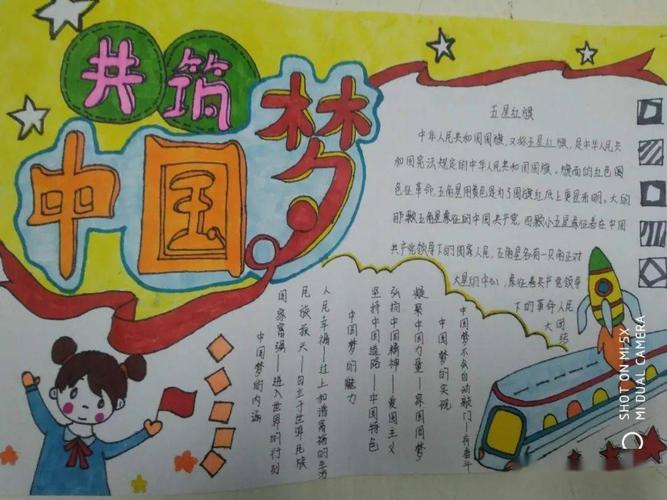 共筑
中国梦
五星红旗
中华人民共和国国旗，又称五星红旗，是中华人民共
和国宪法规定的中华人民共和国国旗。旗面的红色圆
色征革命，五角星用黄色是为了国旗红底上更显色明。大的
那颗五角星象征的中国共产党，四颗小五星象征着在中国
共产党领导下的国家人民，五角星各有一只角正对
大星的中心，象征着共产党领导
下的革命人民
大团
结
中国梦的内涵
国家富强——进入世界的行列
民族振兴——自立于世界民族
人民幸福——过上和谐富裕的生活
中国梦的魅力
坚持中国道路——中国特色
弘扬中国精神——爱国主义
凝聚中国力量——家国同梦
中国梦的实现
中国梦不会自动敲门——兵奋斗
SHOT ON MI 5X
MI DUAL CAMERA